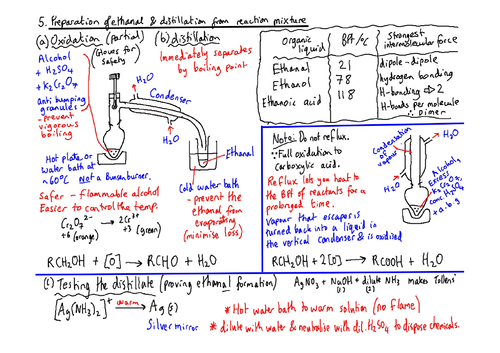 5. Preparation of ethanal & distillation from reaction mixture
(a) Oxidation (partial)
(Gloves for
safety)
Alcohol
+ H2SO4
+ K2Cr2O7
anti bumping
granules
- prevent
vigorous
boiling
Hot plate or
water bath at
~60°C Not a Bunsen burner.
Safer - flammable alcohol
Easier to control the temp.
Cr2O7 2- → 2Cr3+
+6 (orange) +3 (green)
RCH2OH + [O] → RCHO + H2O
(b) distillation
Immediately separates
by boiling point
H2O
Condenser
H2O
Ethanal
Cold water bath
- prevent the
ethanal from
evaporating
(minimise loss)
Organic liquid BPt/°C Strongest intermolecular force
Ethanal 21 dipole-dipole
Ethanol 78 hydrogen bonding
Ethanoic acid 118 H-bonding ⇒ 2
H-bonds per molecule
∴ Dimer
Note: Do not reflux.
∵ Full oxidation to
carboxylic acid.
Reflux lets you heat to
the BPt of reactants for a
prolonged time.
Vapour that escapes is
turned back into a liquid in
the vertical condenser & is oxidised
Condensation
of
vapour
H2O
H2O
Alcohol,
Excess
K2Cr2O7
conc. H2SO4
+ a.b.g
RCH2OH + 2[O] → RCOOH + H2O
(c) Testing the distillate (proving ethanal formation)
AgNO3 + NaOH + dilute NH3 makes Tollens'
(1) (2)
[Ag(NH3)2]+ warm → Ag(s)
Silver mirror
* Hot water bath to warm solution (no flame)
* dilute with water & neutralise with dil. H2SO4 to dispose chemicals.